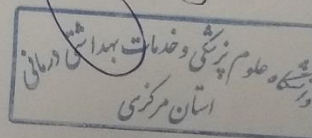 دانشگاه علوم پزشکی و خدمات بهداشتی درمانی
استان مرکزی